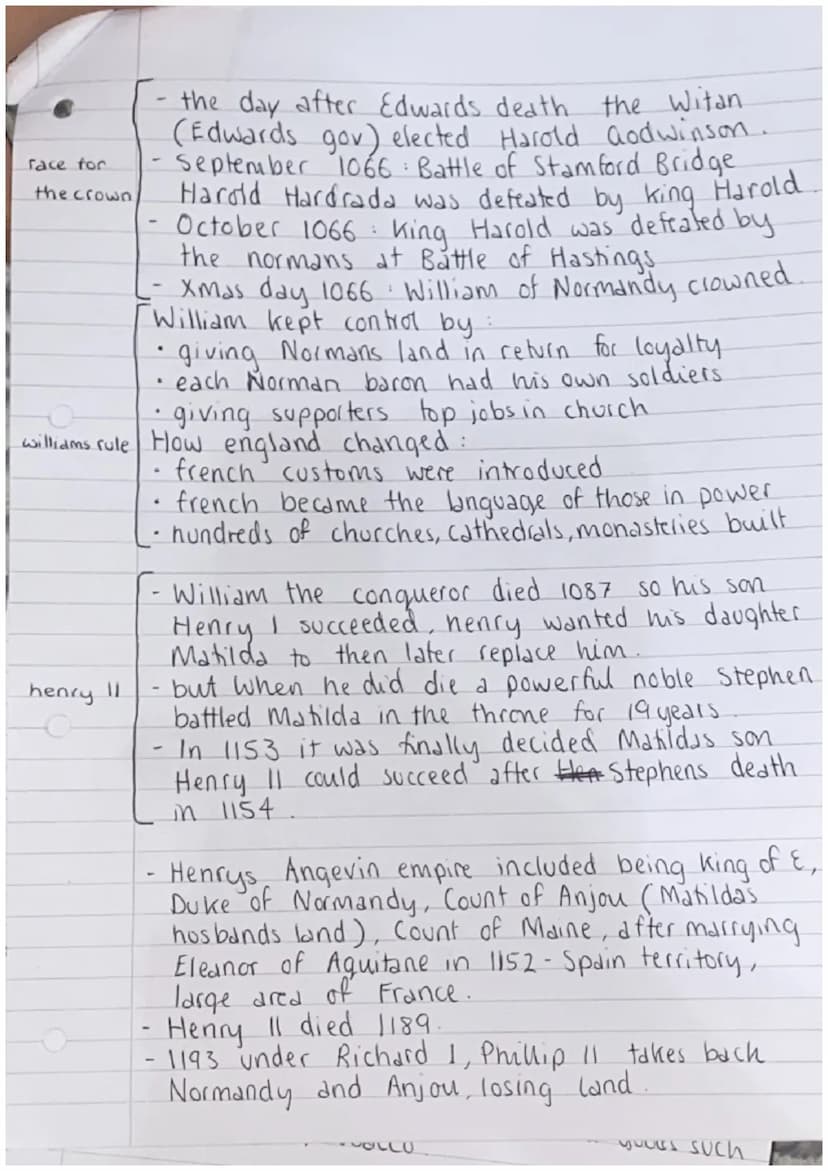 - the day after Edwards death the Witan
(Edwards gov) elected Harold Godwinson.
race for
- September 1066 : Battle of Stamford Bridge
the crown
Harold Hardrada was defeated by King Harold.
- October 1066 : King Harold was defeated by
the normans at Battle of Hastings
- Xmas day 1066 : William of Normandy crowned.
William kept control by :
• giving Normans land in return for loyalty
• each Norman baron had his own soldiers
• giving supporters top jobs in church
williams rule
How england changed :
• french customs were introduced
• french became the language of those in power
• hundreds of churches, cathedrals, monasteries built
- William the conqueror died 1087 so his son
Henry I succeeded, henry wanted his daughter
Matilda to then later replace him.
henry II
- but when he did die a powerful noble Stephen
battled Matilda in the throne for 19 years.
- In 1153 it was finally decided Matildas son
Henry II could succeed after Stephens death
in 1154.
- Henrys Angevin empire included being King of E,
Duke of Normandy, Count of Anjou (Matildas
hosbands land), Count of Maine, after marrying
Eleanor of Aquitane in 1152 - Spain territory,
large area of France.
- Henry II died 1189.
- 1193 under Richard I, Phillip II takes back
Normandy and Anjou, losing land.
such